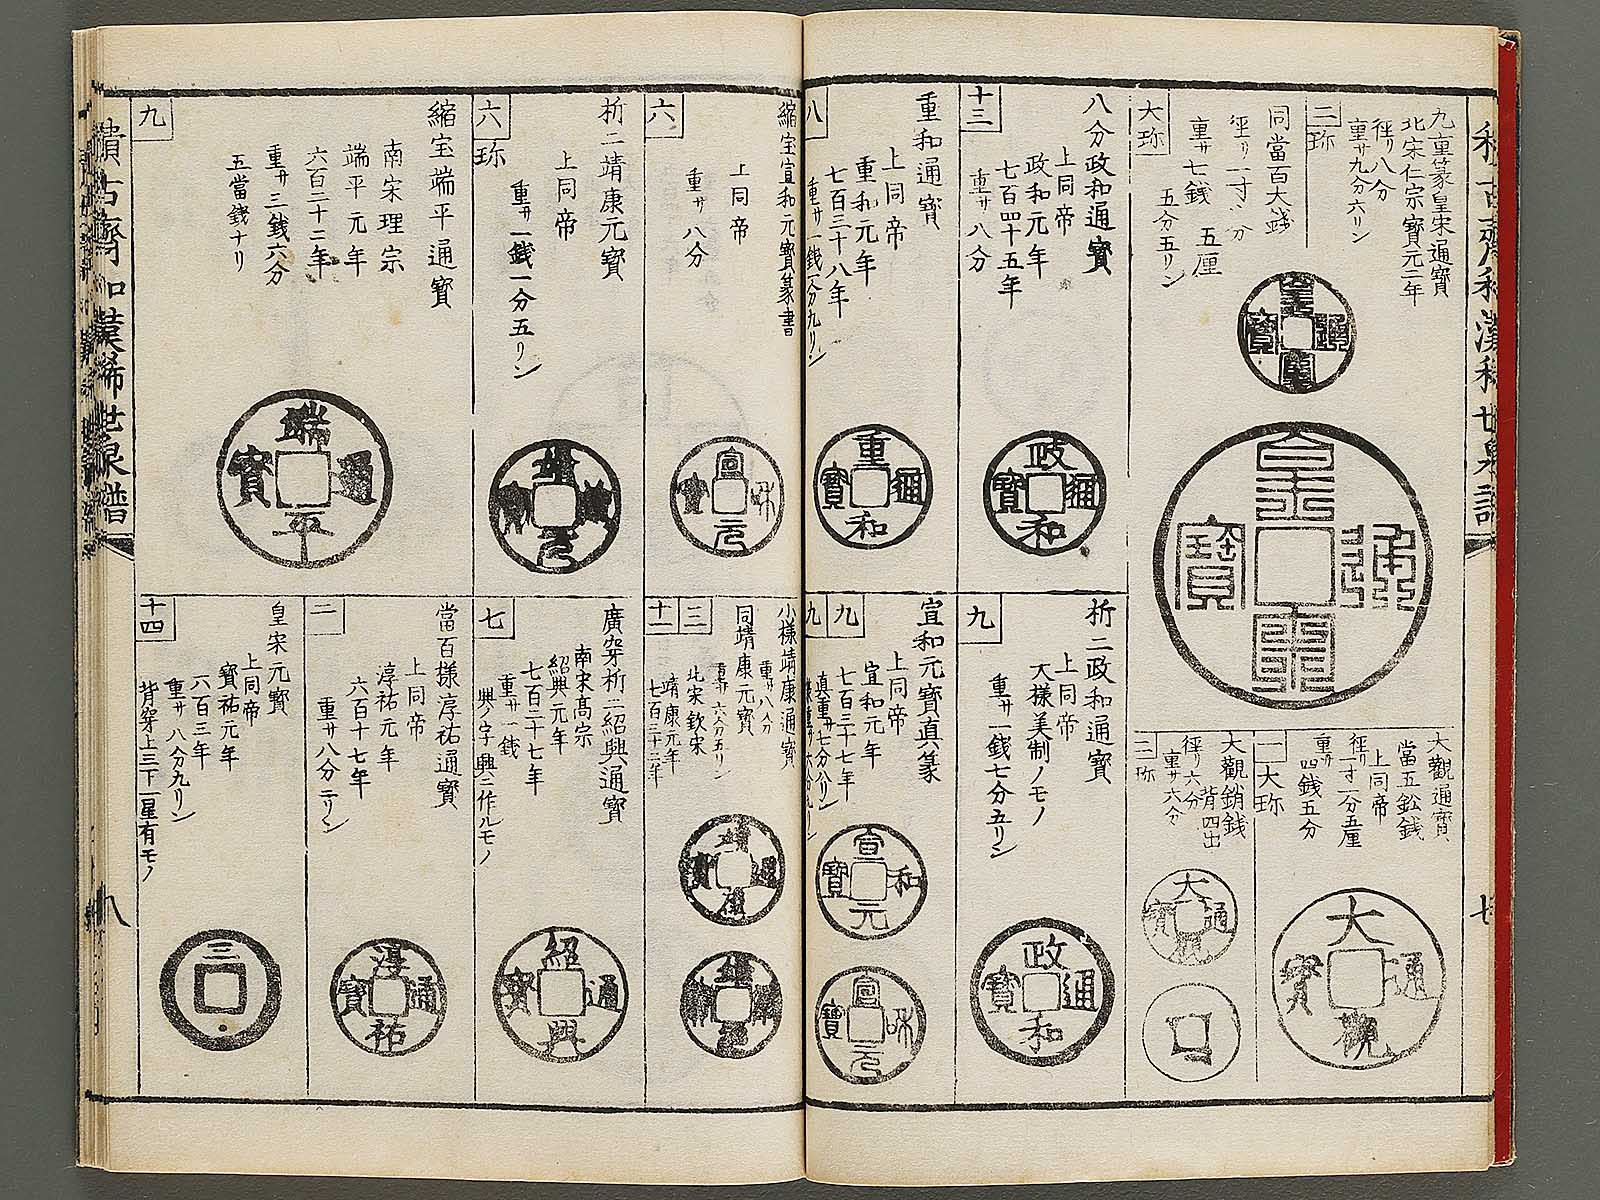 九重篆皇宋通寳
北宋仁宗寳元二年
徑リ八分
重サ九分六リン
二
珎
同當百大錢
徑リ一寸〻分
重サ七錢五厘
五分五リン
大珎
皇宋通寳
皇宋通寳
大觀通寳
當五鈆錢
上同帝
徑リ一寸二分五厘
重サ四錢五分
一
大珎
大觀通寳
大觀銷錢
背四出
徑リ六分
重サ六分
二珎
大觀通寳
八分政和通寳
上同帝
政和元年
七百四十五年
重サ八分
十三
政和通寳
重和通寳
上同帝
重和元年
七百三十八年
重サ一錢一分九リン
八
重和通寳
折二政和通寳
上同帝
大樣美制ノモノ
重サ一錢七分五リン
九
政和通寳
宣和元寳真篆
上同帝
宣和元年
七百三十七年
九
九
宣和元寳
宣和元寳
縮宝宣和元寳篆書
上同帝
重サ八分
六
宣和元寳
折二靖康元寳
上同帝
重サ一錢一分五リン
六
珎
靖康元寳
縮宝端平通寳
南宋理宗
端平元年
六百二十二年
重サ三錢六分
五當錢ナリ
九
端平通寳
小樣靖康通寳
重サ八分
同靖康元寳
重サ六分五リン
北宋欽宋
靖康元年
七百三十二年
三
十一
靖康通寳
靖康元寳
廣穿折二紹興通寳
南宋髙宗
紹興元年
七百二十七年
重サ一錢
興ノ字興ニ作ルモノ
七
紹興通寳
當百樣淳祐通寳
上同帝
淳祐元年
六百十七年
重サ八分二リン
二
淳祐通寳
皇宋元寳
上同帝
寳祐元年
六百三年
重サ八分九リン
背穿上三下一星有モノ
十四
三
八